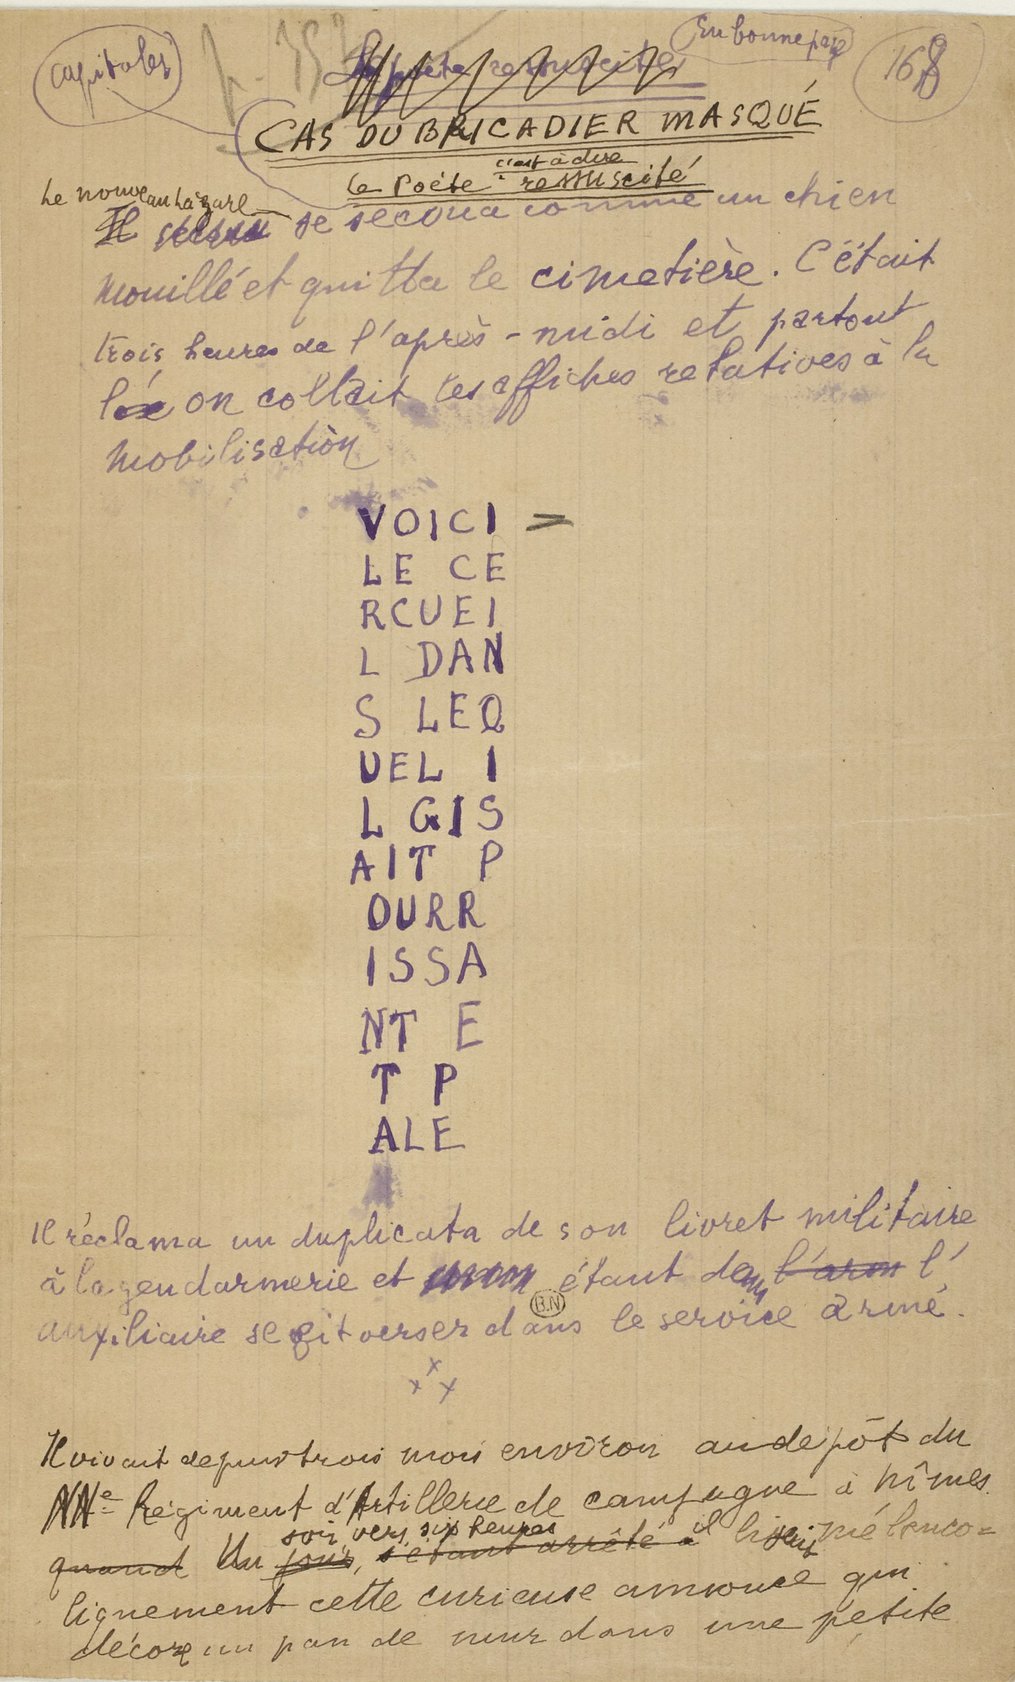 capitales
En bonne page
168
Le poète ressuscité
CAS DU BRIGADIER MASQUÉ
c'est à dire
le Poète ressuscité
Le nouveau Lazare
Il se secoua comme un chien
mouillé et quitta le cimetière. C'était
trois heures de l'après-midi et partout
on collait les affiches relatives à la
mobilisation
VOICI =
LE CE
RCUEI
L DAN
S LEQ
UEL I
L GIS
AIT P
OURR
ISSA
NT E
T P
ALE
Il réclama un duplicata de son livret militaire
à la gendarmerie et étant dans l'arm l'
B.N
auxiliaire se fit verser dans le service armé.
x x x
Il vivait depuis trois mois environ au dépôt du
NNe Régiment d'Artillerie de campagne à Nîmes.
soir, vers six heures
quand Un jour, s'étant arrêté à il lisait mélanco=
liquement cette curieuse annonce qui
décore un pan de mur dans une petite